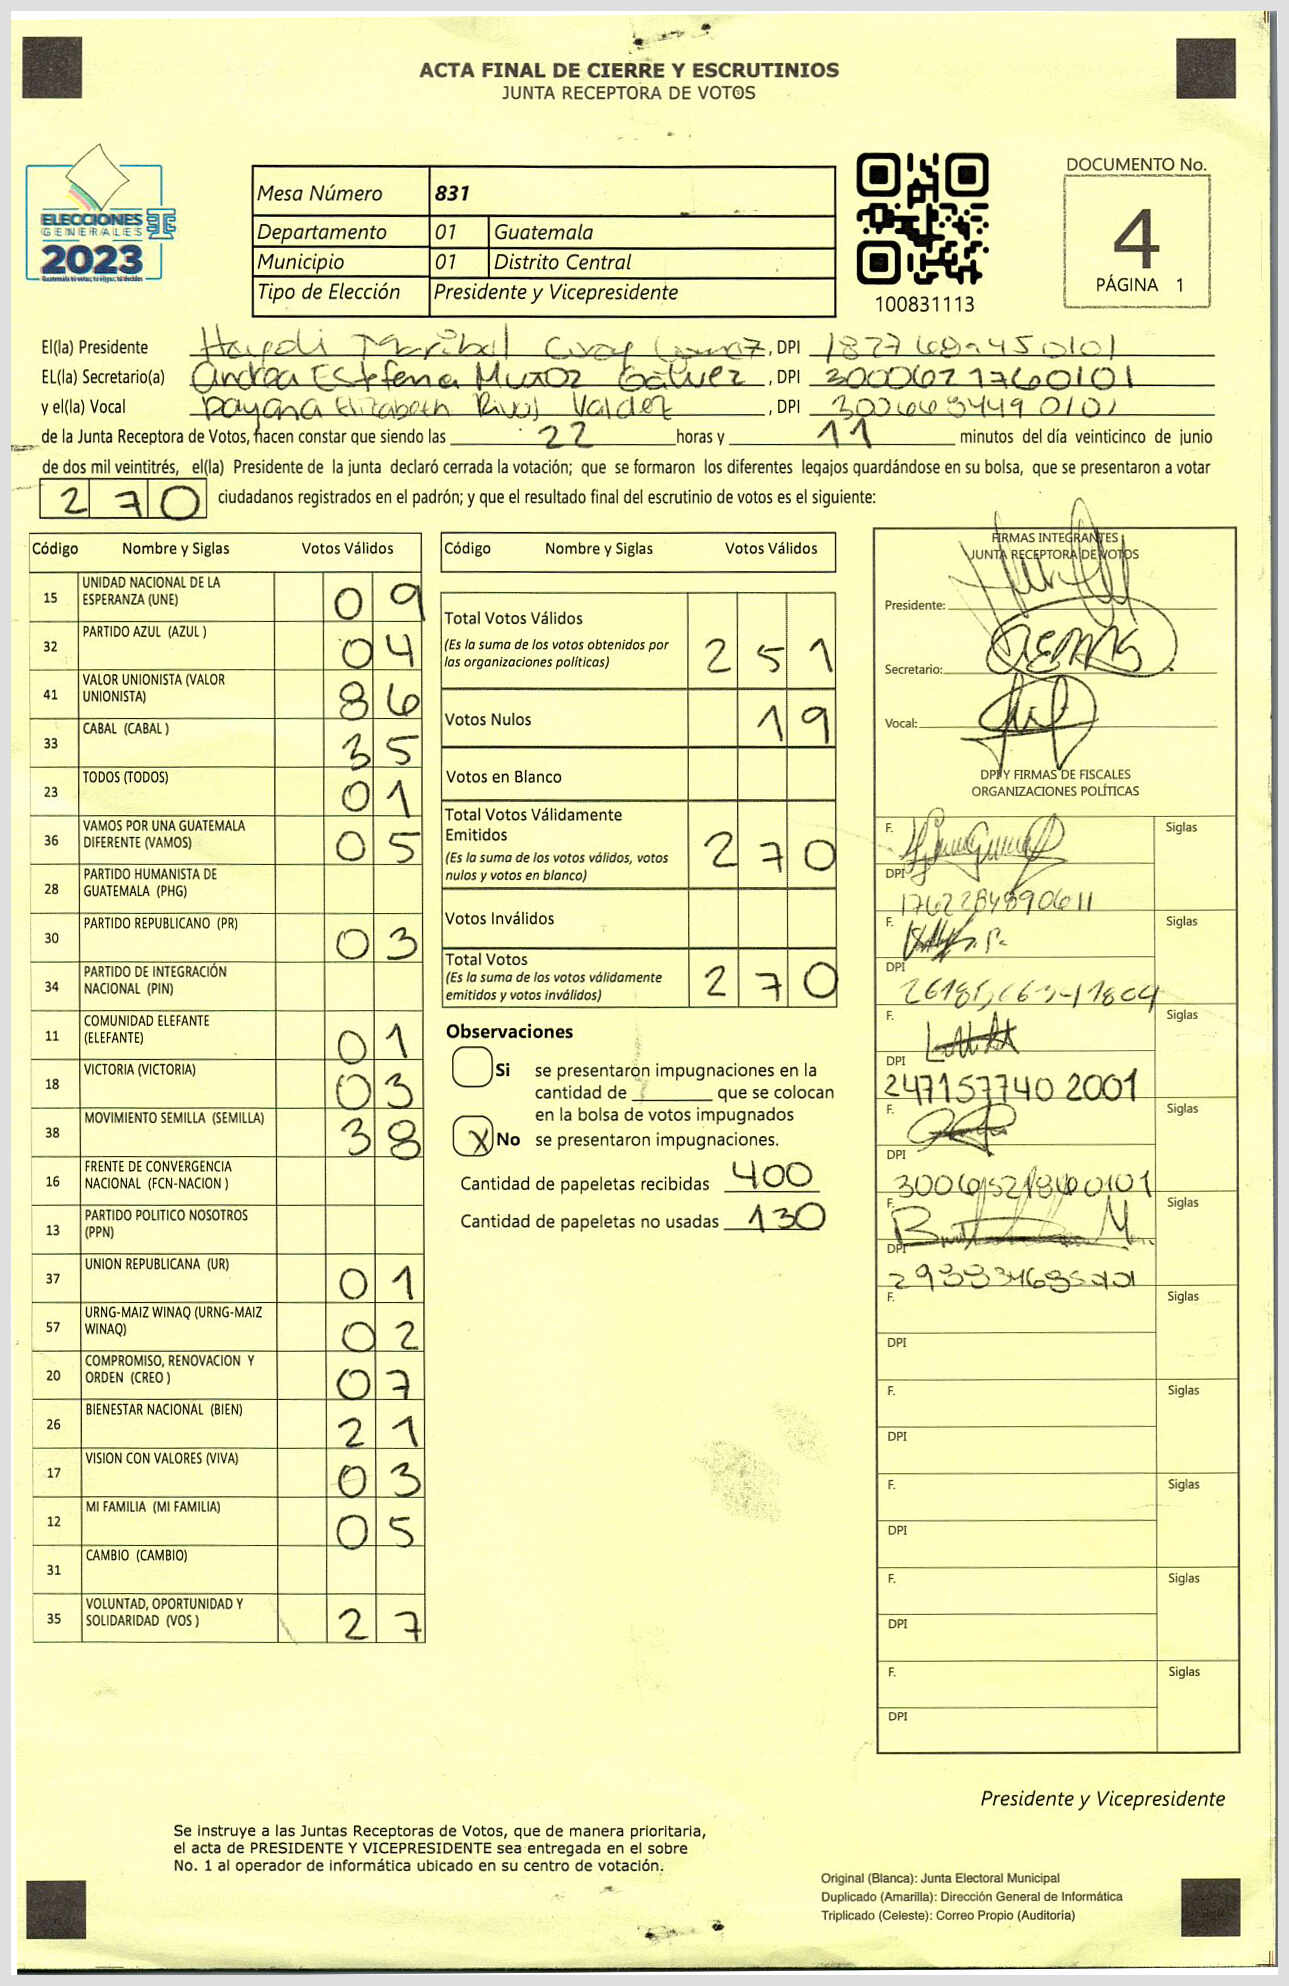 ACTA FINAL DE CIERRE Y ESCRUTINIOS
JUNTA RECEPTORA DE VOTOS
ELECCIONES
GENERALES
2023
Mesa Número 831
Departamento 01 Guatemala
Municipio 01 Distrito Central
Tipo de Elección Presidente y Vicepresidente
100831113
DOCUMENTO No.
4
PÁGINA 1
El(la) Presidente Haydi Maribel , DPI
EL(la) Secretario(a) Andrea Estefenia Muñoz Gálvez , DPI 3000621760101
y el(la) Vocal Dayana Elizabeth Rivol Valdez , DPI 3006634490101
de la Junta Receptora de Votos, hacen constar que siendo las 22 horas y 11 minutos del día veinticinco de junio
de dos mil veintitrés, el(la) Presidente de la junta declaró cerrada la votación; que se formaron los diferentes legajos guardándose en su bolsa, que se presentaron a votar
270 ciudadanos registrados en el padrón; y que el resultado final del escrutinio de votos es el siguiente:
Código Nombre y Siglas Votos Válidos
15 UNIDAD NACIONAL DE LA ESPERANZA (UNE) 09
32 PARTIDO AZUL (AZUL ) 04
41 VALOR UNIONISTA (VALOR UNIONISTA) 86
33 CABAL (CABAL ) 35
23 TODOS (TODOS) 01
36 VAMOS POR UNA GUATEMALA DIFERENTE (VAMOS) 05
28 PARTIDO HUMANISTA DE GUATEMALA (PHG)
30 PARTIDO REPUBLICANO (PR) 03
34 PARTIDO DE INTEGRACIÓN NACIONAL (PIN)
11 COMUNIDAD ELEFANTE (ELEFANTE) 01
18 VICTORIA (VICTORIA) 03
38 MOVIMIENTO SEMILLA (SEMILLA) 38
16 FRENTE DE CONVERGENCIA NACIONAL (FCN-NACION )
13 PARTIDO POLITICO NOSOTROS (PPN)
37 UNION REPUBLICANA (UR) 01
57 URNG-MAIZ WINAQ (URNG-MAIZ WINAQ) 02
20 COMPROMISO, RENOVACION Y ORDEN (CREO ) 07
26 BIENESTAR NACIONAL (BIEN) 21
17 VISION CON VALORES (VIVA) 03
12 MI FAMILIA (MI FAMILIA) 05
31 CAMBIO (CAMBIO)
35 VOLUNTAD, OPORTUNIDAD Y SOLIDARIDAD (VOS ) 27
Código Nombre y Siglas Votos Válidos
Total Votos Válidos 251
(Es la suma de los votos obtenidos por las organizaciones políticas)
Votos Nulos 19
Votos en Blanco
Total Votos Válidamente Emitidos 270
(Es la suma de los votos válidos, votos nulos y votos en blanco)
Votos Inválidos
Total Votos 270
(Es la suma de los votos válidamente emitidos y votos inválidos)
Observaciones
Si se presentaron impugnaciones en la
cantidad de ______ que se colocan
en la bolsa de votos impugnados
X No se presentaron impugnaciones.
Cantidad de papeletas recibidas 400
Cantidad de papeletas no usadas 130
FIRMAS INTEGRANTES
JUNTA RECEPTORA DE VOTOS
Presidente:
Secretario:
Vocal:
DPI Y FIRMAS DE FISCALES
ORGANIZACIONES POLÍTICAS
F. Siglas
DPI
1762284890611
F. Siglas
DPI
F. Siglas
DPI
247157740 2001
F. Siglas
DPI
F. Siglas
DPI
F. Siglas
DPI
F. Siglas
DPI
F. Siglas
DPI
F. Siglas
DPI
F. Siglas
DPI
Presidente y Vicepresidente
Se instruye a las Juntas Receptoras de Votos, que de manera prioritaria,
el acta de PRESIDENTE Y VICEPRESIDENTE sea entregada en el sobre
No. 1 al operador de informática ubicado en su centro de votación.
Original (Blanca): Junta Electoral Municipal
Duplicado (Amarilla): Dirección General de Informática
Triplicado (Celeste): Correo Propio (Auditoria)